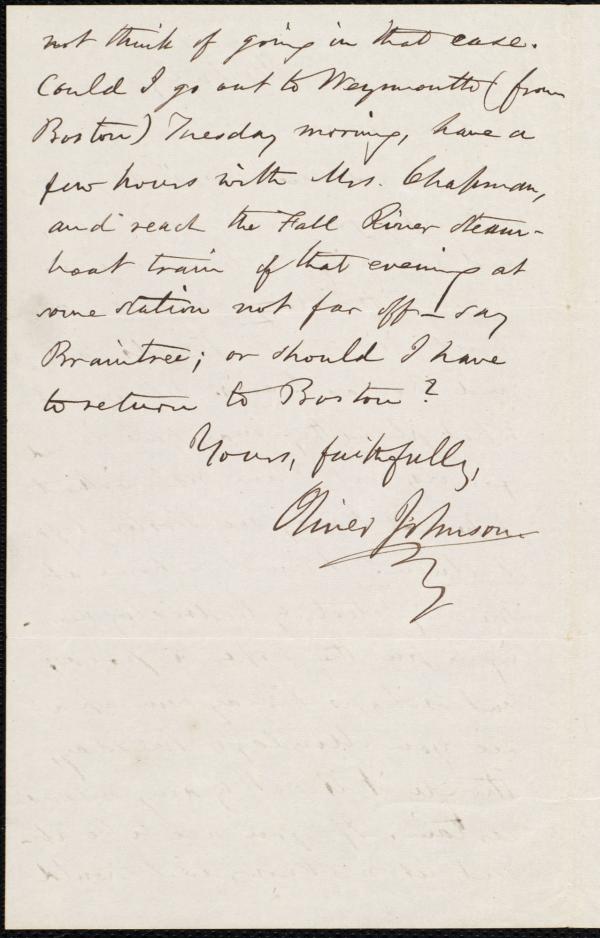 not think of going in that case.
Could I go out to Weymouth (from
Boston) Tuesday morning, have a
few hours with Mrs. Chapman,
and reach the Fall River steam-
boat train of that evening at
some station not far off—say
Braintree; or should I have
to return to Boston?
Yours, faithfully,
Oliver Johnson.